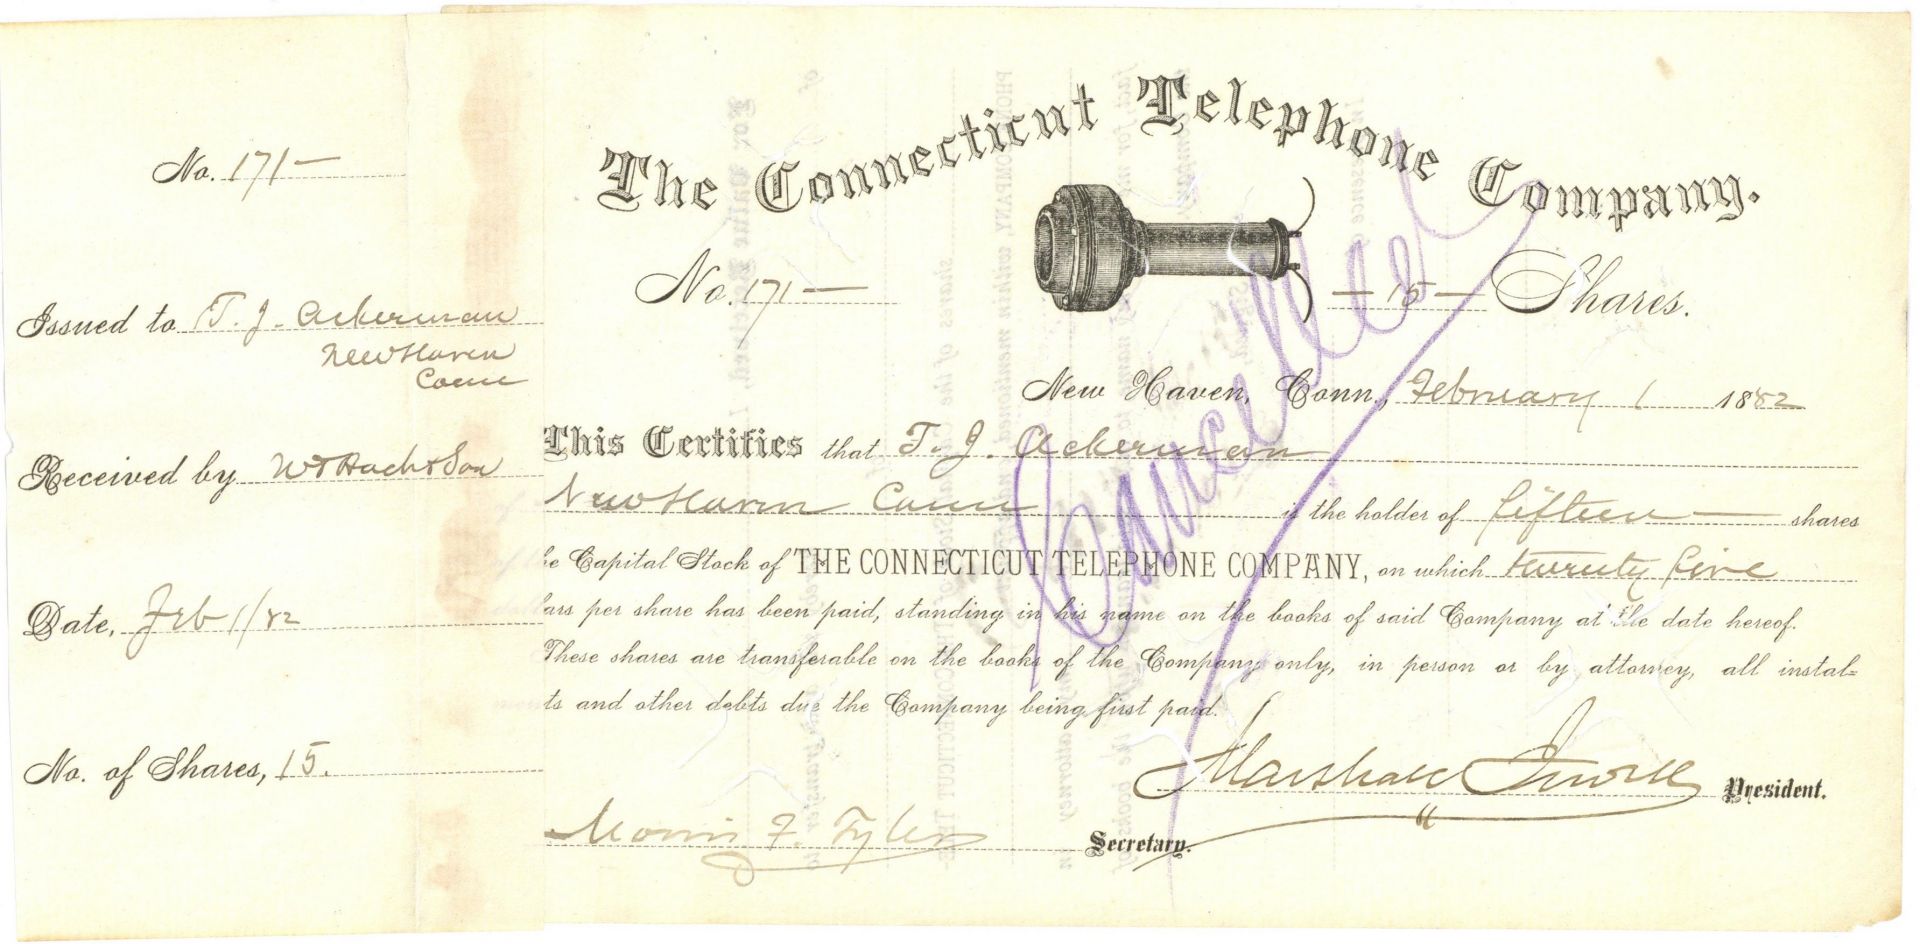 No. 171—
Issued to T. J. Ackerman
New Haven
Conn
Received by
Date, Feb 1/82
No. of Shares, 15.
The Connecticut Telephone Company.
No. 171—
—15— Shares.
New Haven, Conn., February 1 1882
This Certifies that T. J. Ackerman
New Haven Conn is the holder of fifteen — shares
he Capital Stock of THE CONNECTICUT TELEPHONE COMPANY, on which twenty five
lars per share has been paid, standing in his name on the books of said Company at the date hereof.
These shares are transferable on the books of the Company only, in person or by attorney, all instal=
ts and other debts due the Company being first paid.
Marshall Jewell President.
Morris F. Tyler Secretary.
Cancelled